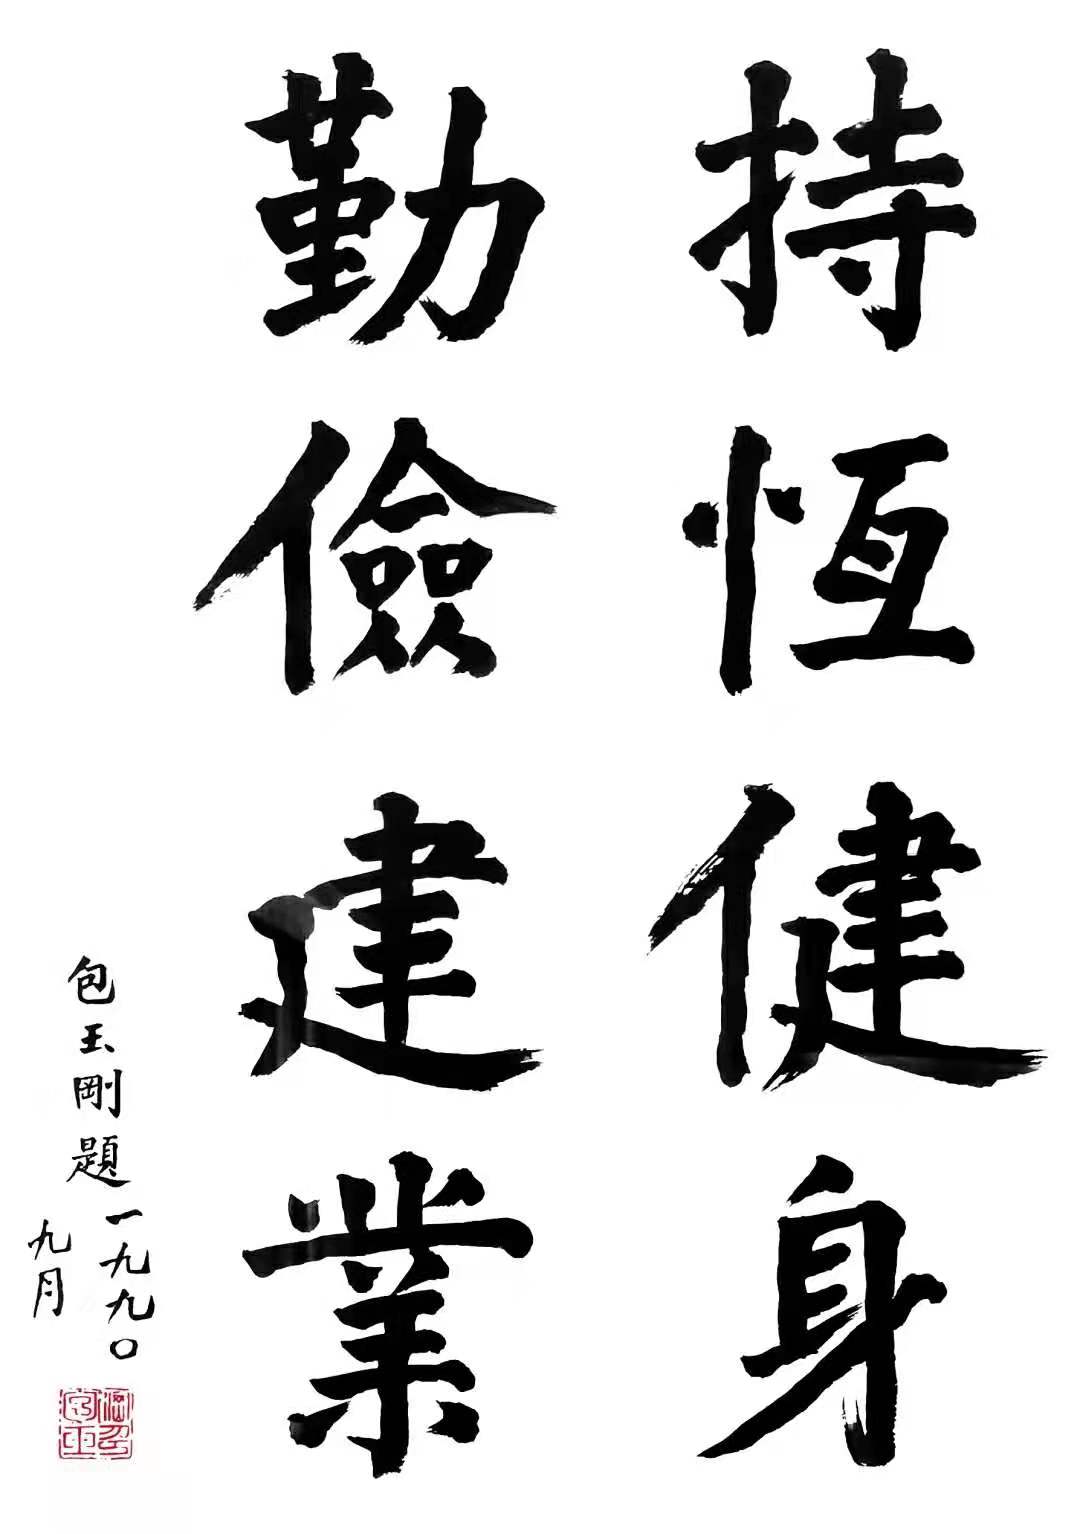 持恆健身
勤儉建業
包玉剛題一九九〇
九月